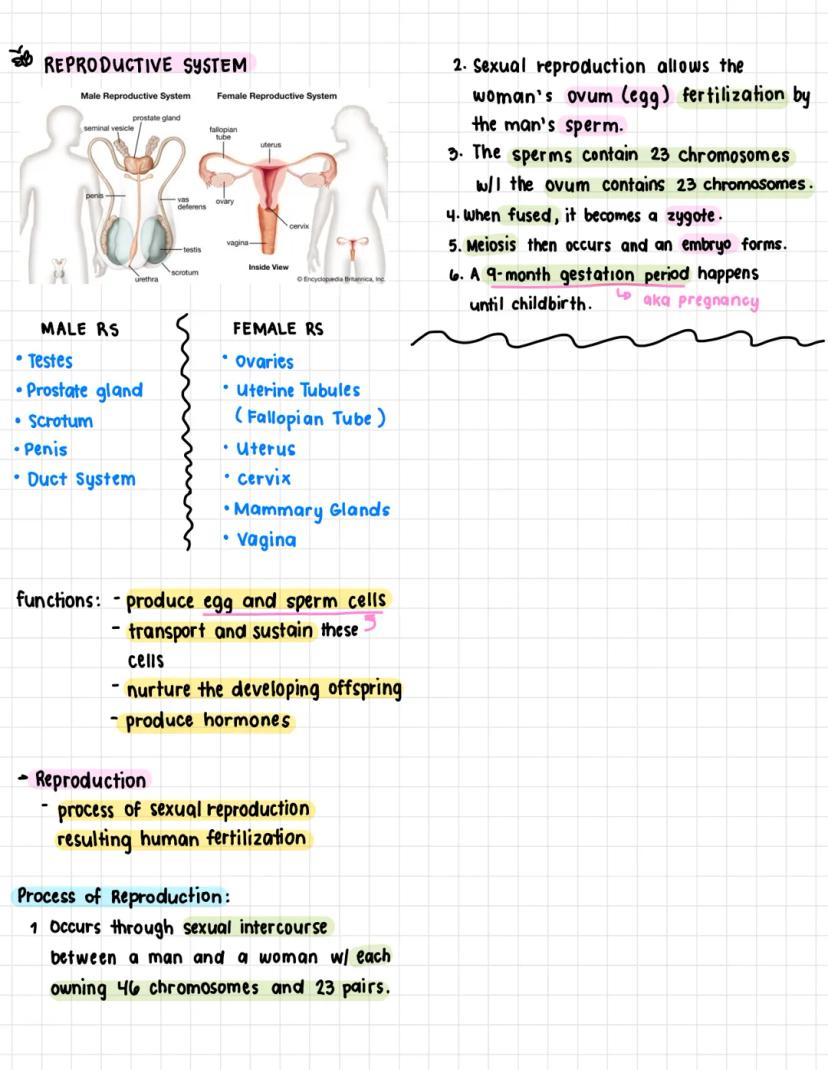 REPRODUCTIVE SYSTEM
Male Reproductive System
Female Reproductive System
prostate gland
seminal vesicle
penis
vas
deferens
testis
scrotum
urethra
fallopian
tube
uterus
ovary
cervix
vagina
Inside View
© Encyclopædia Britannica, Inc.
MALE RS
• Testes
• Prostate gland
• Scrotum
• Penis
• Duct System
FEMALE RS
• Ovaries
• Uterine Tubules
(Fallopian Tube)
• Uterus
• Cervix
• Mammary Glands
• Vagina
functions: - produce egg and sperm cells
- transport and sustain these
cells
- nurture the developing offspring
- produce hormones
- Reproduction
- process of sexual reproduction
resulting human fertilization
Process of Reproduction:
1 Occurs through sexual intercourse
between a man and a woman w/ each
owning 46 chromosomes and 23 pairs.
2. Sexual reproduction allows the
woman's ovum (egg) fertilization by
the man's sperm.
3. The sperms contain 23 chromosomes
w/l the ovum contains 23 chromosomes.
4. When fused, it becomes a zygote.
5. Meiosis then occurs and an embryo forms.
6. A 9-month gestation period happens
until childbirth. ↳ aka pregnancy